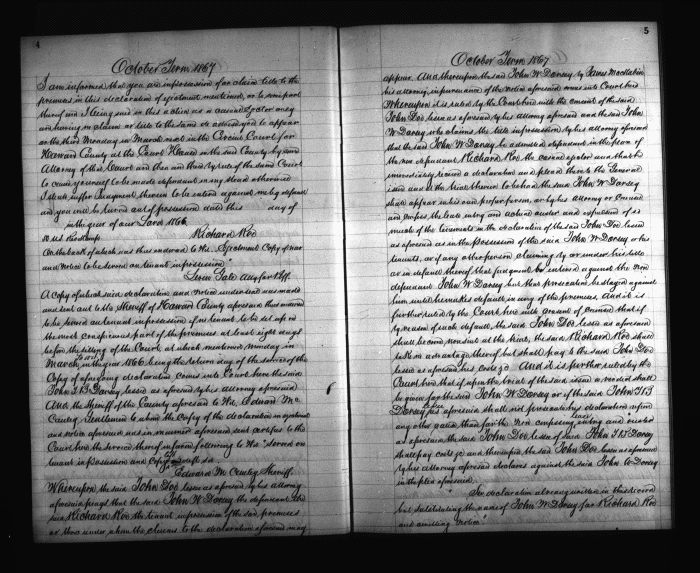 4
October Term 1867
I am informed that you are in possession of or claim title to the
premises in this declaration of ejectment mentioned, or to some part
thereof and I being sued in this action as a casual Ejector only
and having no claim or title to the same do advise you to appear
on the third Monday in March next in the Circuit Court for
Howard County at the Court House in the said County by some
Attorney of that Court and then and there by rule of the same Court
to cause yourself to be made defendant in my stead otherwise
I shall suffer Judgment therein to be entered against me by default
and you will be turned out of possession dated this day of
in the year of our Lord 1866.
Richard Roe
On the back of which was thus endorsed to wit. Ejectment Copy of Nar
and Notice to be served on tenant in possession"
Atty for Plff.
A Copy of which said declaration and notice under seal was made
and sent out to the Sheriff of Howard County aforesaid thus ordered
to be served on tenant in possession if no tenant to be set up on
the most conspicuous part of the premises at least eight days
before the sitting of the Court, at which mentioned Monday in
March, in the year 1866 being the return day of the service of the
Copy of aforegoing declaration comes into Court here the said
John H B Dorsey, lessee as aforesaid by his attorney aforesaid
And the Sheriff of the County aforesaid to wit, Edward Mc
Cauley, Gentleman to whom the Copy of the declaration in ejectment
and notice aforesaid was in manner aforesaid sent certifies to the
Court here the service thereof in form following to wit "Served on
tenant in possession and Copy left with so
Edward McCauley Sheriff.
Whereupon the said John Doe lessee as aforesaid by his attorney
aforesaid prays that the said John W Dorsey the defendant
said Richard Roe the tenant in possession of the said premises
or those under whom he claims to the declaration aforesaid may
5
October Term 1867
appear. And thereupon the said John W Dorsey by James Mackubin
his attorney, in pursuance of the notice aforesaid comes into Court here
Whereupon it is ruled by the Court here with the consent of the said
John Doe lessee as aforesaid by his attorney aforesaid and the said John
W Dorsey who claims the title in possession by his attorney aforesaid
that the said John W Dorsey be admitted defendant in the place of
the now defendant Richard Roe the casual ejector and that he
immediately receive a declaration and plead thereto the General
issue and at the trial thereon to be had the said John W Dorsey
shall appear in his own proper person, or by his attorney or Counsel
and confess the lease entry and actual ouster and
much of the tenements in the declaration of the said John Doe lessee
as aforesaid as in the possession of the said John W Dorsey or his
tenants, or of any other person claiming by or under his title
or in default thereof that judgment be entered against the now
defendant John W Dorsey but that prosecution be stayed against
him until he makes default in any of the premises. And it is
further ruled by the Court here with consent of Counsel that if
by reason of such default the said John Doe lessee as aforesaid
shall become nonsuit at the trial, the said Richard Roe shall
take no advantage thereof but shall pay to the said John Doe
lessee as aforesaid his costs &c And it is further ruled by the
Court here that if upon the trial of the said issue a verdict shall
be given for the said John W Dorsey or if the said John H B
Dorsey as aforesaid shall not prosecute his declaration upon
any other cause than for the non confessing entry and ouster
as aforesaid the said John Doe, lessee of said John H B Dorsey
shall pay costs &c and thereupon the said John Doe lessee as aforesaid
by his attorney aforesaid declares against the said John W Dorsey
in the plea aforesaid
See declaration already written in this record
but substituting the name of John W Dorsey for Richard Roe
and omitting notice"